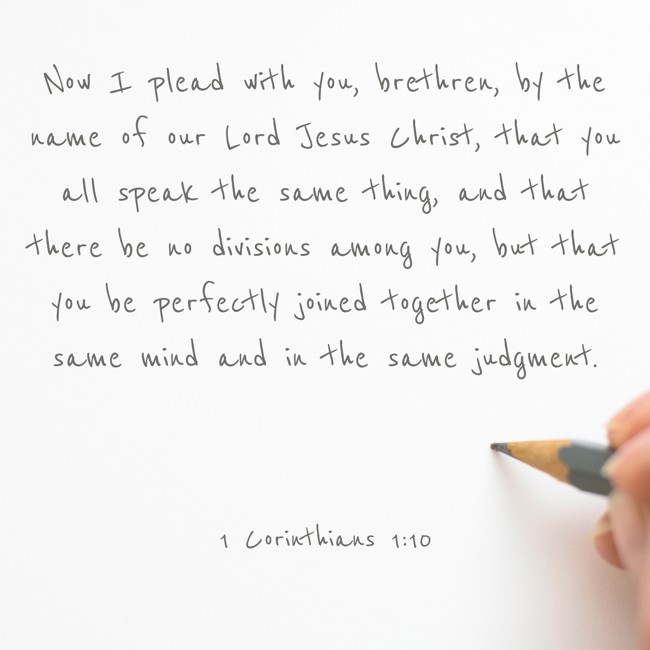 Now I plead with you, brethren, by the
name of our Lord Jesus Christ, that you
all speak the same thing, and that
there be no divisions among you, but that
you be perfectly joined together in the
same mind and in the same judgment.
1 Corinthians 1:10